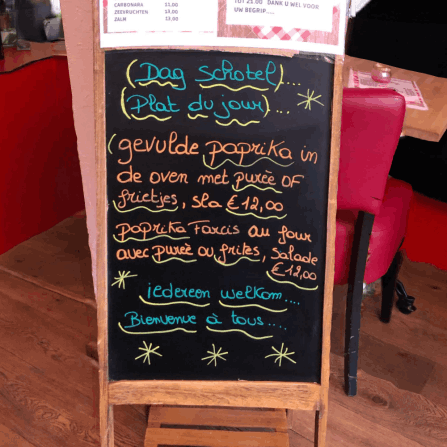 CARBONARA 11,00
ZEEVRUCHTEN 13,00
ZALM 13,00
TOT 21.00 DANK U WEL VOOR
UW BEGRIP....
(Dag Schotel)...
(Plat du jour)...
(gevulde paprika in
de oven met purèe OF
frietjes, sla €12,00
paprika Farcis au four
avec purèe ou frites, Salade
€12,00
iedereen welkom....
Bienvenue à tous....